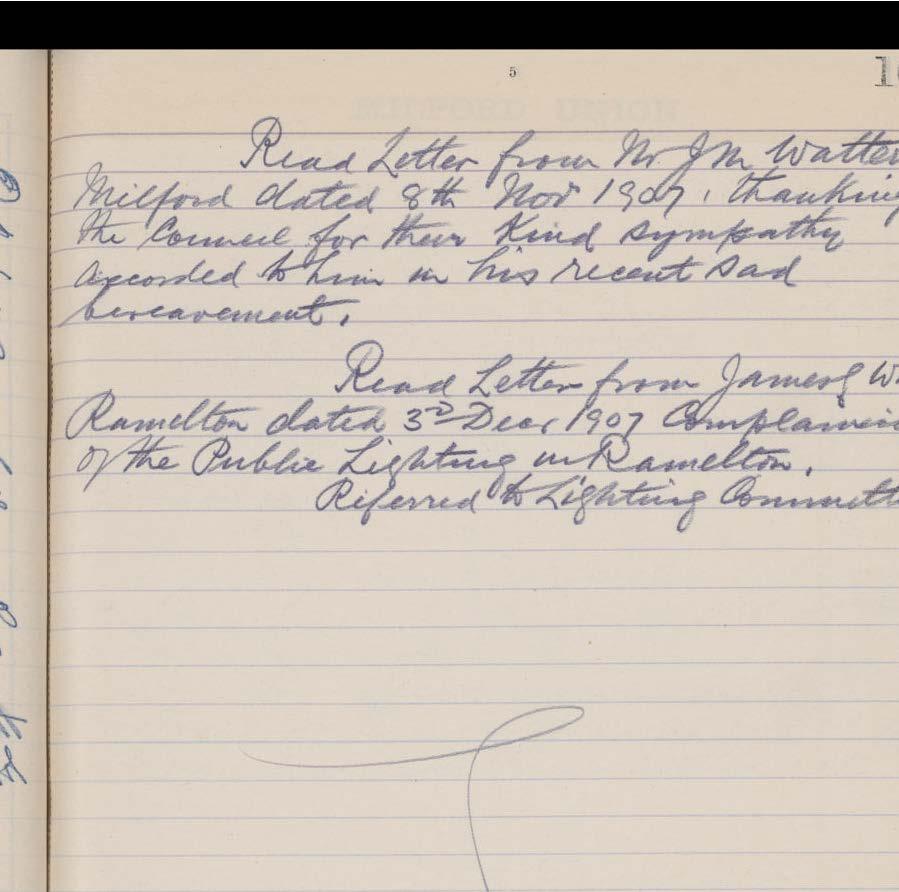 5
Read Letter from Mr J M Watter
Milford dated 8th Novr 1907, thanking
the Council for their Kind sympathy
accorded to him in his recent sad
bereavement.
Read Letter from James W
Ramelton dated 3rd Decr 1907 Complainin
of the Public Lighting in Ramelton.
Referred to Lighting Committ